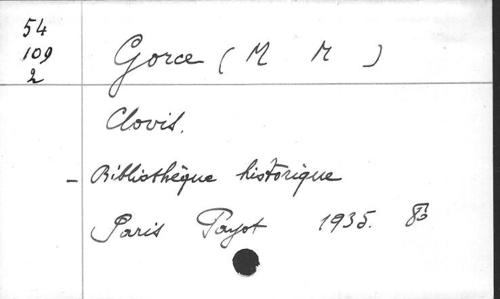 54
109
2
Gorce ( M M )
Clovis.
- Bibliothèque historique
Paris Payot 1935.